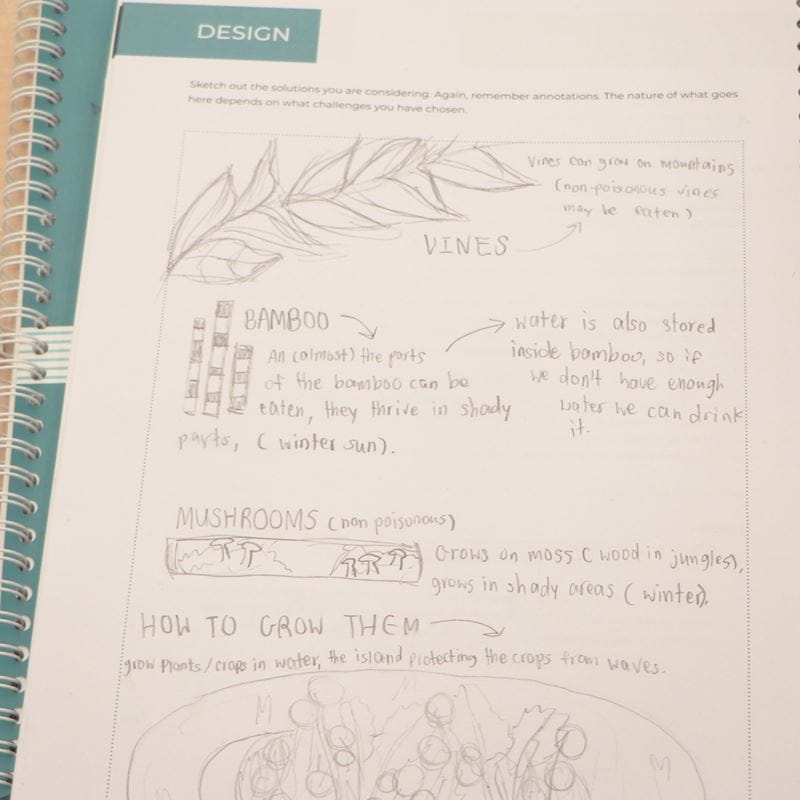 DESIGN
Sketch out the solutions you are considering. Again, remember annotations. The nature of what goes
here depends on what challenges you have chosen.
Vines can grow on mountains
(non-poisonous vines
may be eaten)
VINES
BAMBOO
An (almost) the parts
of the bamboo can be
eaten, they thrive in shady
parts, ( winter sun).
water is also stored
inside bamboo, so if
we don't have enough
water we can drink
it.
MUSHROOMS (non poisonous)
Grows on moss ( wood in jungles),
grows in shady areas ( winter).
HOW TO GROW THEM
grow plants/crops in water, the island protecting the crops from waves.
M
M
M
M